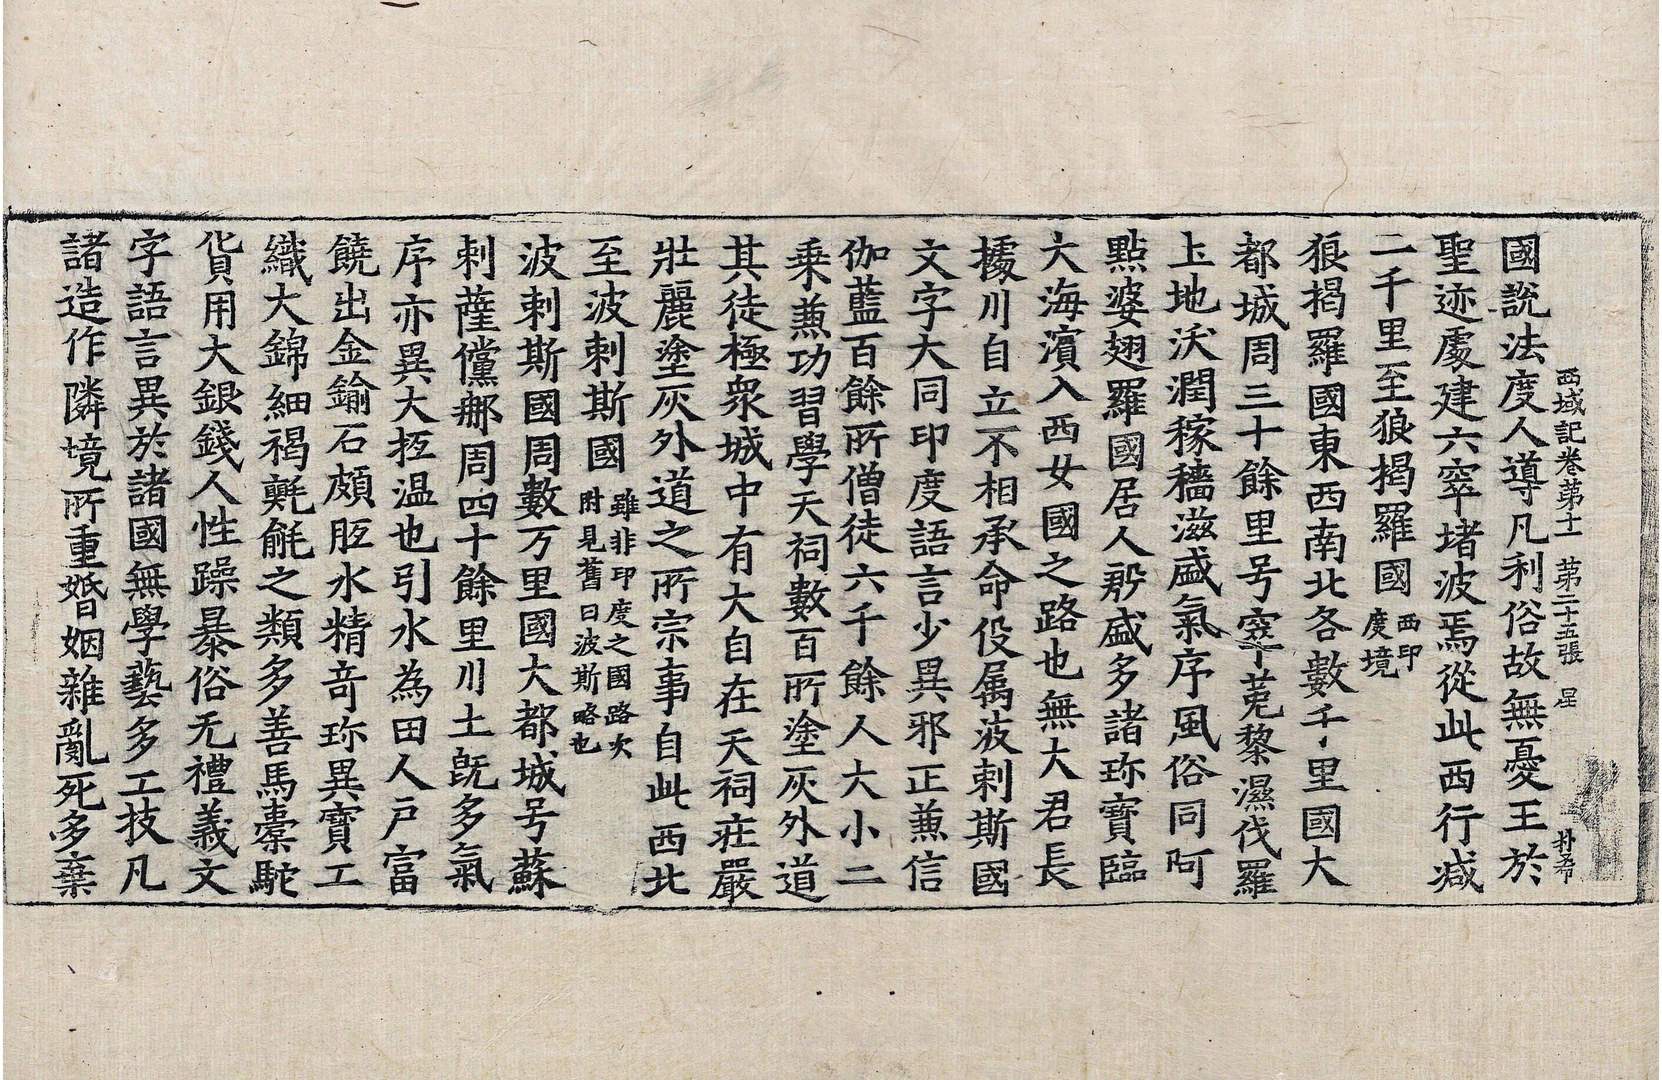 西域記卷第十一 第二十五張 星 朴希
國說法度人導凡利俗故無憂王於
聖迹處建六窣堵波焉從此西行减
二千里至狼揭羅國西印度境
狼揭羅國東西南北各數千里國大
都城周三十餘里号窣菟黎濕伐羅
土地沃潤稼穡滋盛氣序風俗同阿
點婆翅羅國居人殷盛多諸珎寶臨
大海濱入西女國之路也無大君長
據川自立不相承命役属波剌斯國
文字大同印度語言少異邪正兼信
伽藍百餘所僧徒六千餘人大小二
乗兼功習學天祠數百所塗灰外道
其徒極衆城中有大自在天祠莊嚴
壯麗塗灰外道之所宗事自此西北
至波剌斯國雖非印度之國路次附見舊曰波斯略也
波剌斯國周數万里國大都城号蘇
剌薩儻那周四十餘里川土旣多氣
序亦異大抵温也引水為田人户富
饒出金鍮石頗胝水精竒珎異寶工
織大錦細褐氍毹之類多善馬橐駝
貨用大銀錢人性躁暴俗无禮義文
字語言異於諸國無學藝多工技凡
諸造作隣境所重婚姻雜亂死多棄